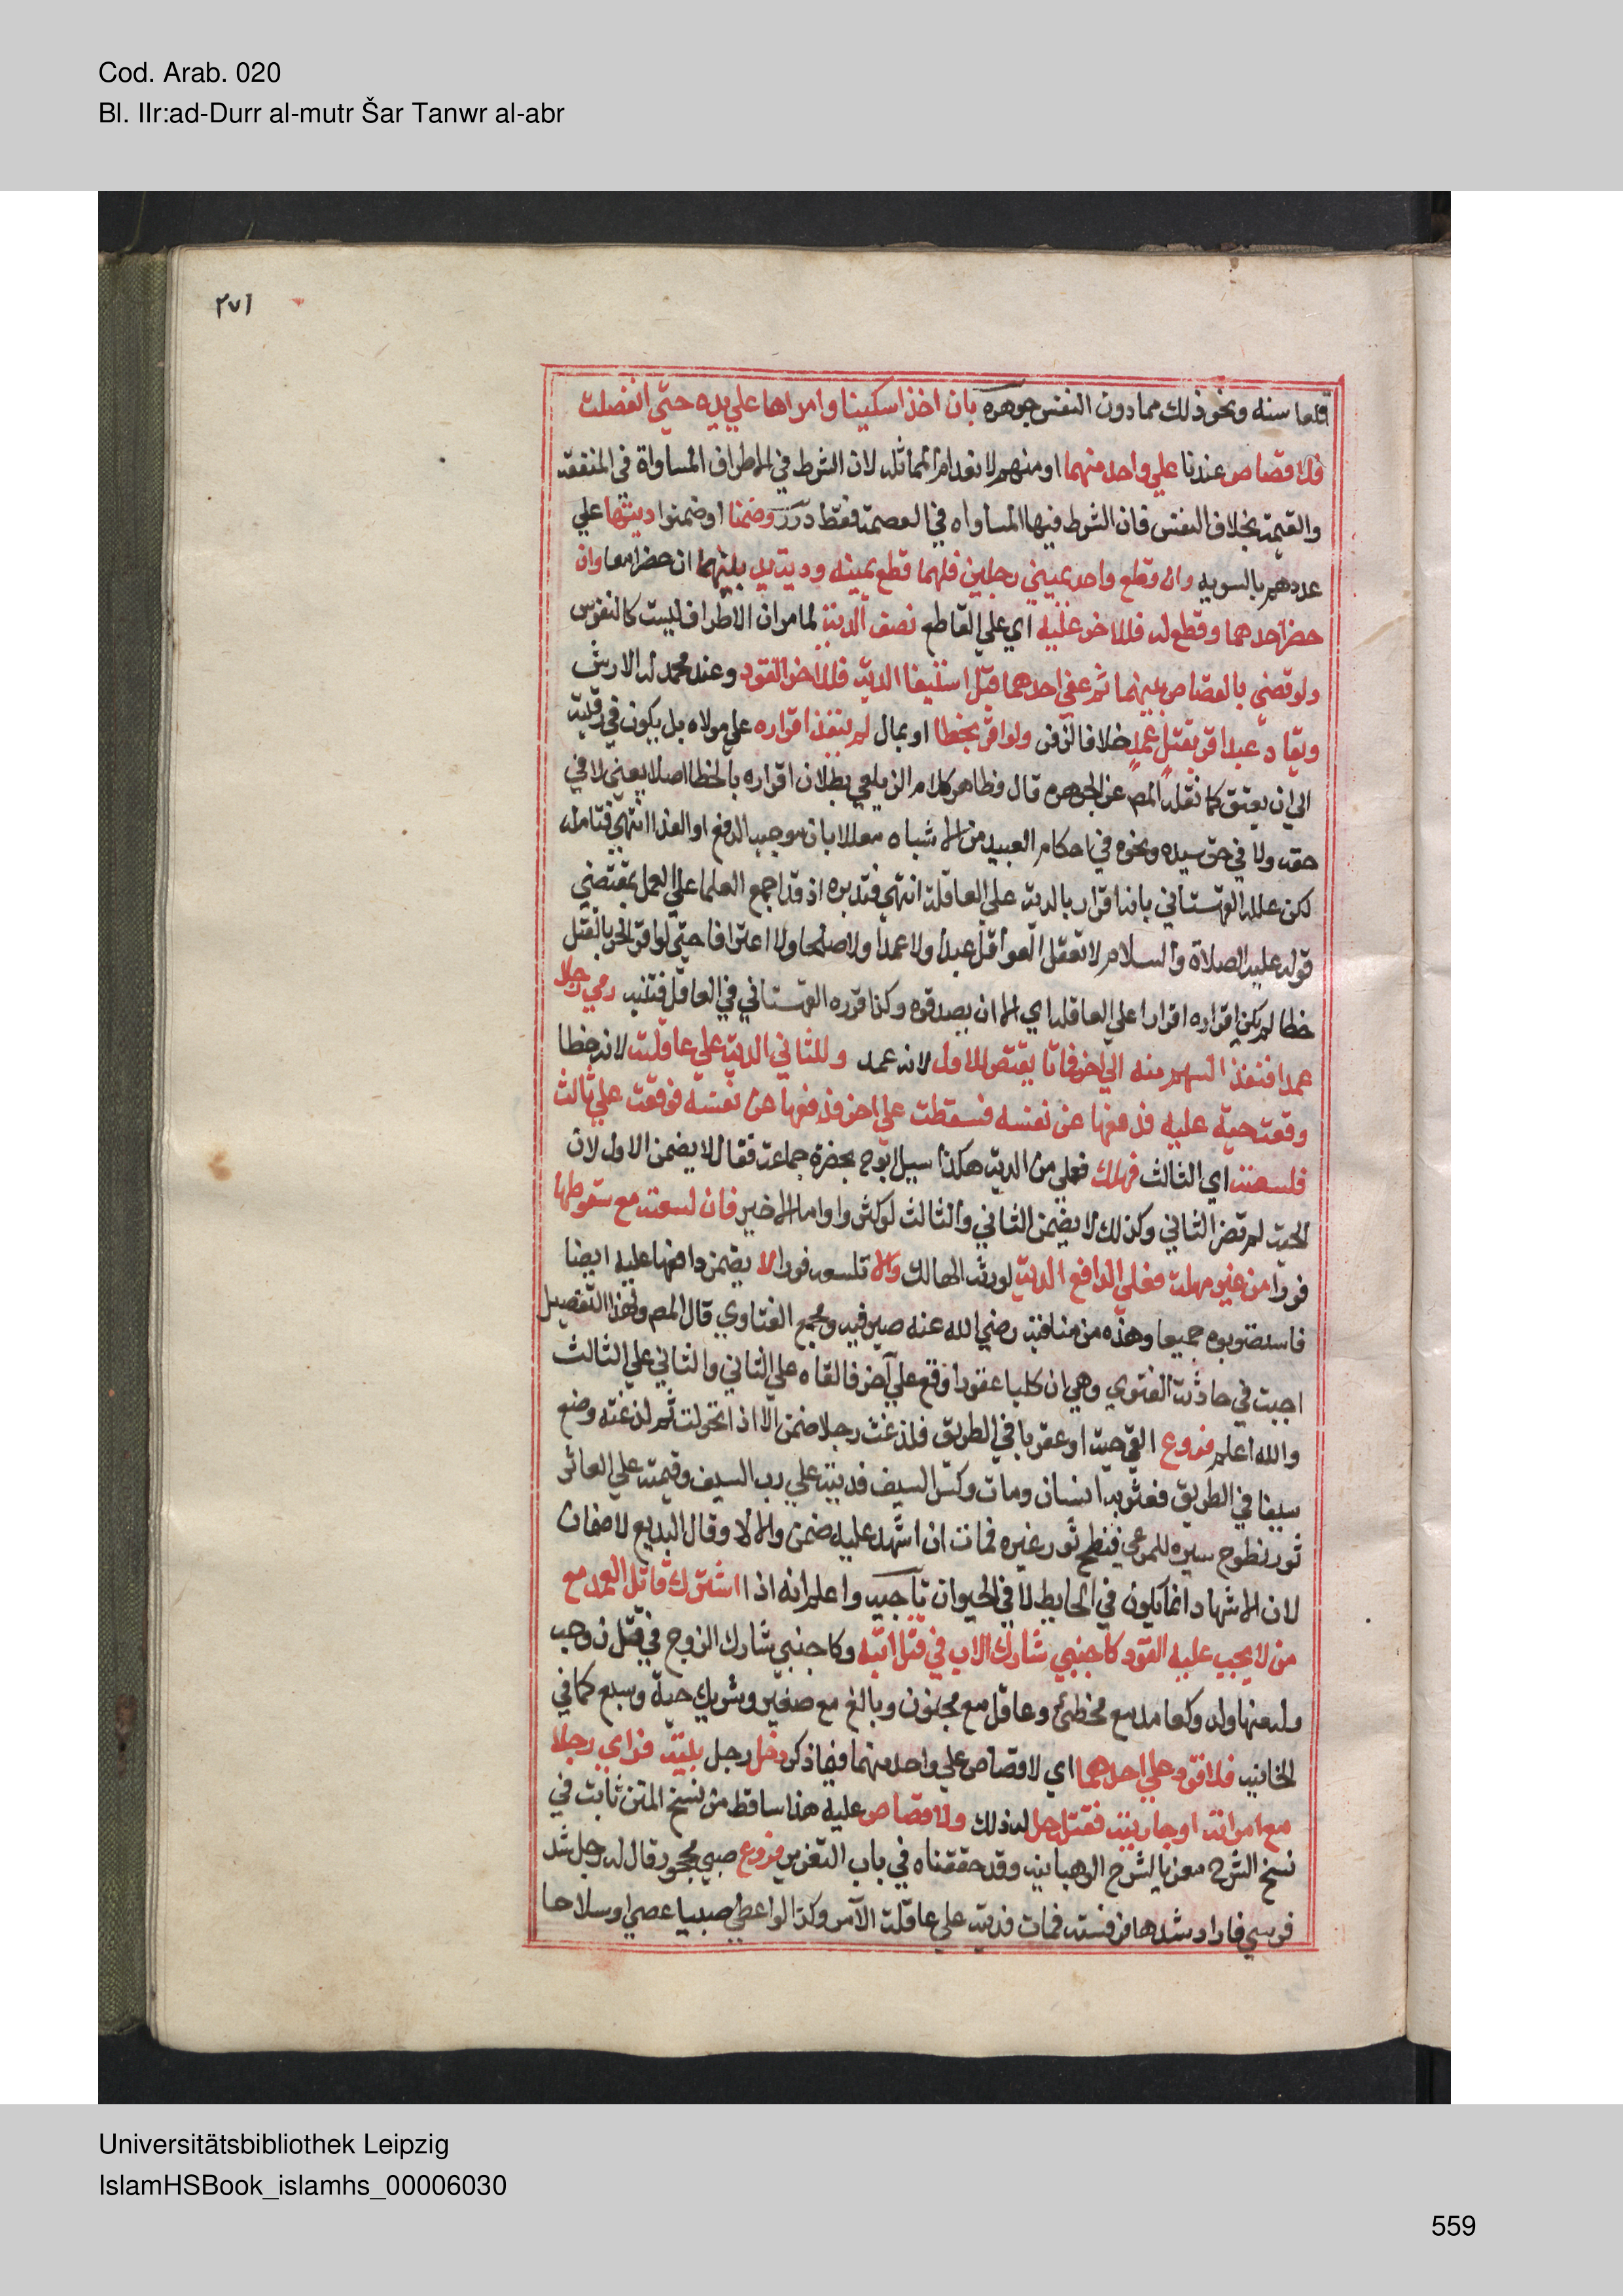 Cod. Arab. 020
Bl. IIr:ad-Durr al-mutr Šar Tanwr al-abr
٢٧١
قلعا سنه ونحو ذلك مما دون النفس جوهره بان اخذا سكينا وامراها علي يده حتي انفصلت
فلا قصاص عندنا علي واحد منهما او منهم لانعدام المماثله لان الشرط في الاطراف المساواة في المنفعة
والقيمة بخلاف النفس فان الشرط فيها المساواه في العصمة فقط درر وضمنا او ضمنوا ديتها علي
عددهم بالسويه وان قطع واحد يميني رجلين فلهما قطع يمينه ودية يد بينهما ان حضرا معا وان
حضر احدهما وقطع له فللاخر عليه اي علي القاطع نصف الدية لما مر ان الاطراف ليست كالنفوس
ولو قضي بالقصاص بينهما ثم عفي احدهما قبل استيفا الدية فللاخر القود وعند محمد له الارش
ويقاد عبد اقر بقتل عمد خلافا لزفر ولو اقر بخطا او بمال لم ينفذ اقراره علي مولاه بل يكون في رقبته
الي ان يعتق كما نقله المص عن الجوهره قال وظاهر كلام الزيلعي بطلان اقراره بالخطا اصلا يعني لا في
حقه ولا في حق سيده ونحوه في احكام العبيد من الاشباه معللا بان موجبه الدفع او الفدا انتهي فتامله
لكن علله القهستاني بانه اقرار بالدية علي العاقلة انتهي فتدبره اذ قد اجمع العلما علي العمل بمقتضي
قوله عليه الصلاة والسلام لا تعقل العواقل عبدا ولا عمدا ولا صلحا ولا اعترافا حتي لو اقر الحر بالقتل
خطا لم يكن اقراره اقرارا علي العاقلة اي الا ان يصدقوه وكذا قرره القهستاني في العاقل فتنبه رمي رجلا
عمدا فنفذ السهم منه الي اخر فماتا يقتص للاول لانه عمد وللثاني الدية علي عاقلته لانه خطا
وقعت حية عليه فدفعها عن نفسه فسقطت علي اخر فدفعها عن نفسه فوقعت علي ثالث
فلسعته اي الثالث فهلك فعلي من الدية هكذا سيل ابو ح بحضرة جماعة فقال لا يضمن الاول لان
الحية لم تضر الثاني وكذلك لا يضمن الثاني والثالث لو كثروا واما الاخير فان لسعته مع سقوطها
فورا من غير مهلة فعلي الدافع الدية لورثة الهالك والا تلسعه فورا لا يضمن دافعها عليه ايضا
فاستصوبوه جميعا وهذه من مناقبه رضي الله عنه صيرفيه ومجمع الفتاوي قال المص وبهذا التفصيل
اجبت في حادثة الفتوي وهي ان كلبا عقورا وقع علي آخر فالقاه علي الثاني والثاني علي الثالث
والله اعلم فروع القي حية او عقربا في الطريق فلدغت رجلا ضمن الا اذا تحولت ثم لدغته وضع
سيفا في الطريق فعثر به انسان ومات وكسر السيف فديته علي رب السيف وقيمته علي العاثر
ثور نطوح سيره للمرعي فنطح ثور غيره فمات ان اشهد عليه ضمن والا لا وقال البديع لا ضمان
لان الاشهاد انما يكون في الحايط لا في الحيوان تاجيه واعلم انه اذا اشترك قاتل العمد مع
من لا يجب عليه القود كاجنبي شارك الاب في قتل ابنه وكاجنبي شارك الزوج في قتل زوجته
وله منها ولد وكعامد مع مخطئ وعاقل مع مجنون وبالغ مع صغير وشريك حية وسبع كما في
الخانيه فلا قود علي احدهما اي لا قصاص علي واحد منهما فيما ذكر دخل رجل بيته فراي رجلا
مع امراته او جاريته فقتله حل له ذلك ولا قصاص عليه هذا ساقط من نسخ المتن ثابت في
نسخ الشرح معزيا لشرح الوهبانيه وقد حققناه في باب التعزير فروع صبي محجور قال له رجل شد
فرسي فاراد شدها فرفسته فمات فديته علي عاقلة الآمر وكذا لو اعطي صبيا عصي او سلاحا
Universitätsbibliothek Leipzig
IslamHSBook_islamhs_00006030
559